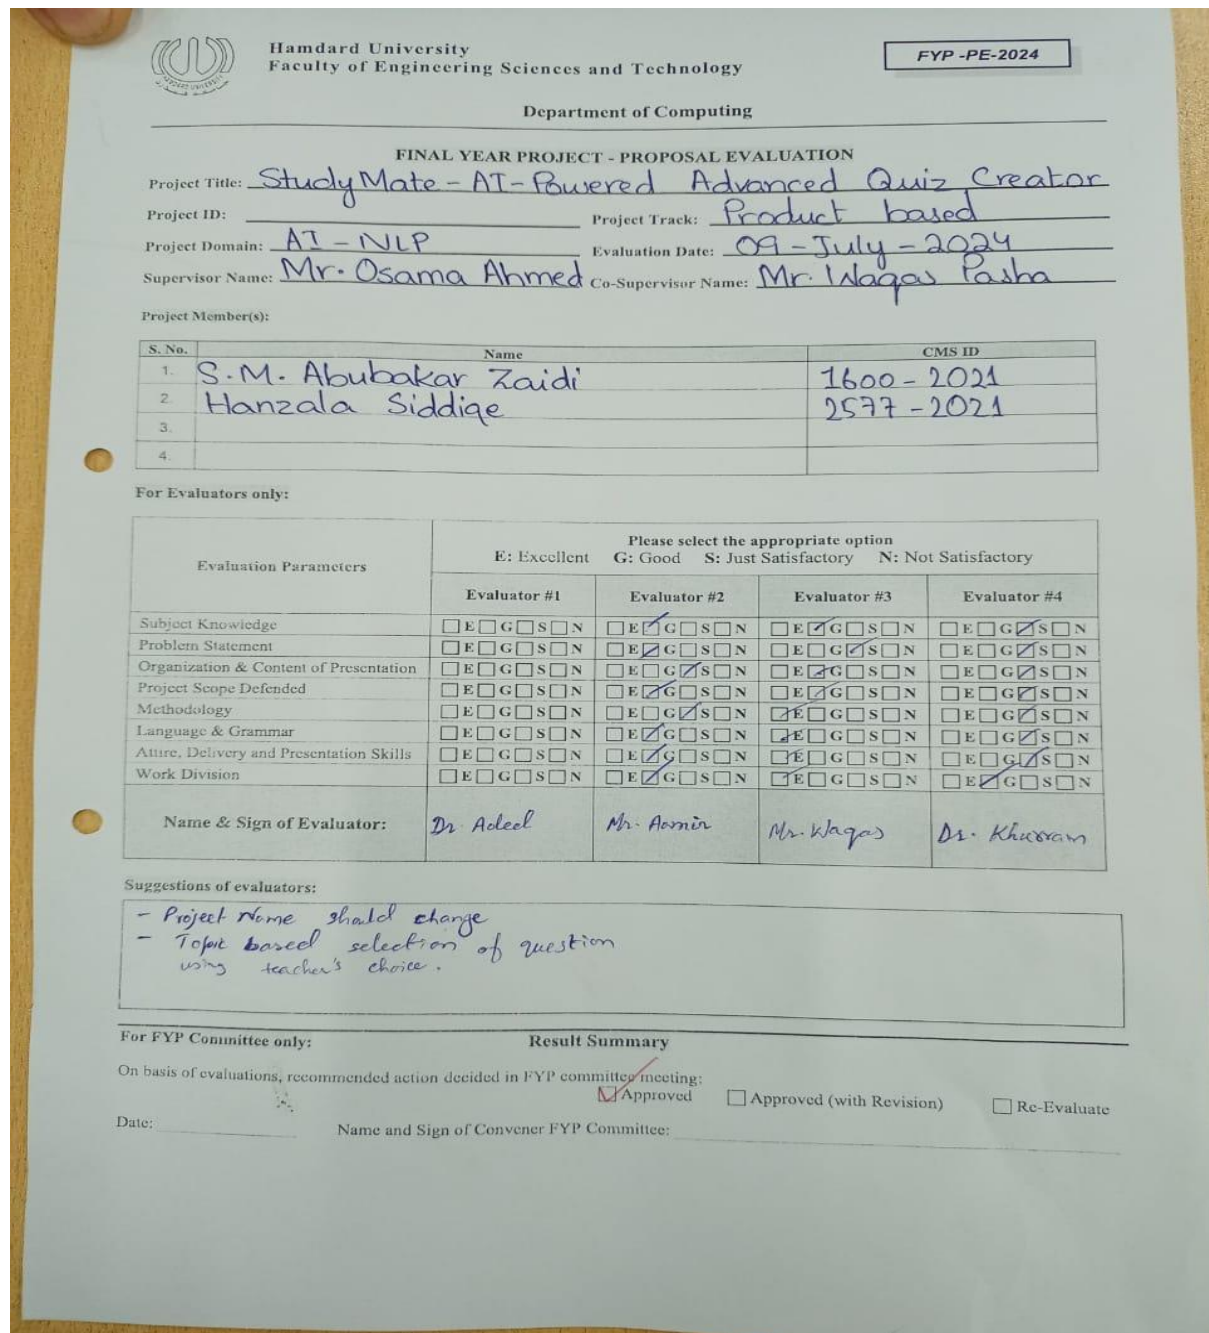 Hamdard University
Faculty of Engineering Sciences and Technology
FYP -PE-2024
HAMDARD UNIVERSITY
Department of Computing
FINAL YEAR PROJECT - PROPOSAL EVALUATION
Project Title: StudyMate - AI - Powered Advanced Quiz Creator
Project ID: Project Track: Product based
Project Domain: AI - NLP Evaluation Date: 09 - July - 2024
Supervisor Name: Mr. Osama Ahmed Co-Supervisor Name: Mr. Waqas Pasha
Project Member(s):
S. No. Name CMS ID
1. S.M. Abubakar Zaidi 1600 - 2021
2. Hanzala Siddiqe 2577 - 2021
3.
4.
For Evaluators only:
Evaluation Parameters
Please select the appropriate option
E: Excellent G: Good S: Just Satisfactory N: Not Satisfactory
Evaluator #1 Evaluator #2 Evaluator #3 Evaluator #4
Subject Knowledge E G S N E G S N E G S N E G S N
Problem Statement E G S N E G S N E G S N E G S N
Organization & Content of Presentation E G S N E G S N E G S N E G S N
Project Scope Defended E G S N E G S N E G S N E G S N
Methodology E G S N E G S N E G S N E G S N
Language & Grammar E G S N E G S N E G S N E G S N
Attire, Delivery and Presentation Skills E G S N E G S N E G S N E G S N
Work Division E G S N E G S N E G S N E G S N
Name & Sign of Evaluator: Dr. Adeel Mr. Aamir Mr. Waqas Dr. Khurram
Suggestions of evaluators:
- Project Name should change
- Topic based selection of question
using teacher's choice.
For FYP Committee only: Result Summary
On basis of evaluations, recommended action decided in FYP committee meeting:
Approved Approved (with Revision) Re-Evaluate
Date: Name and Sign of Convener FYP Committee: